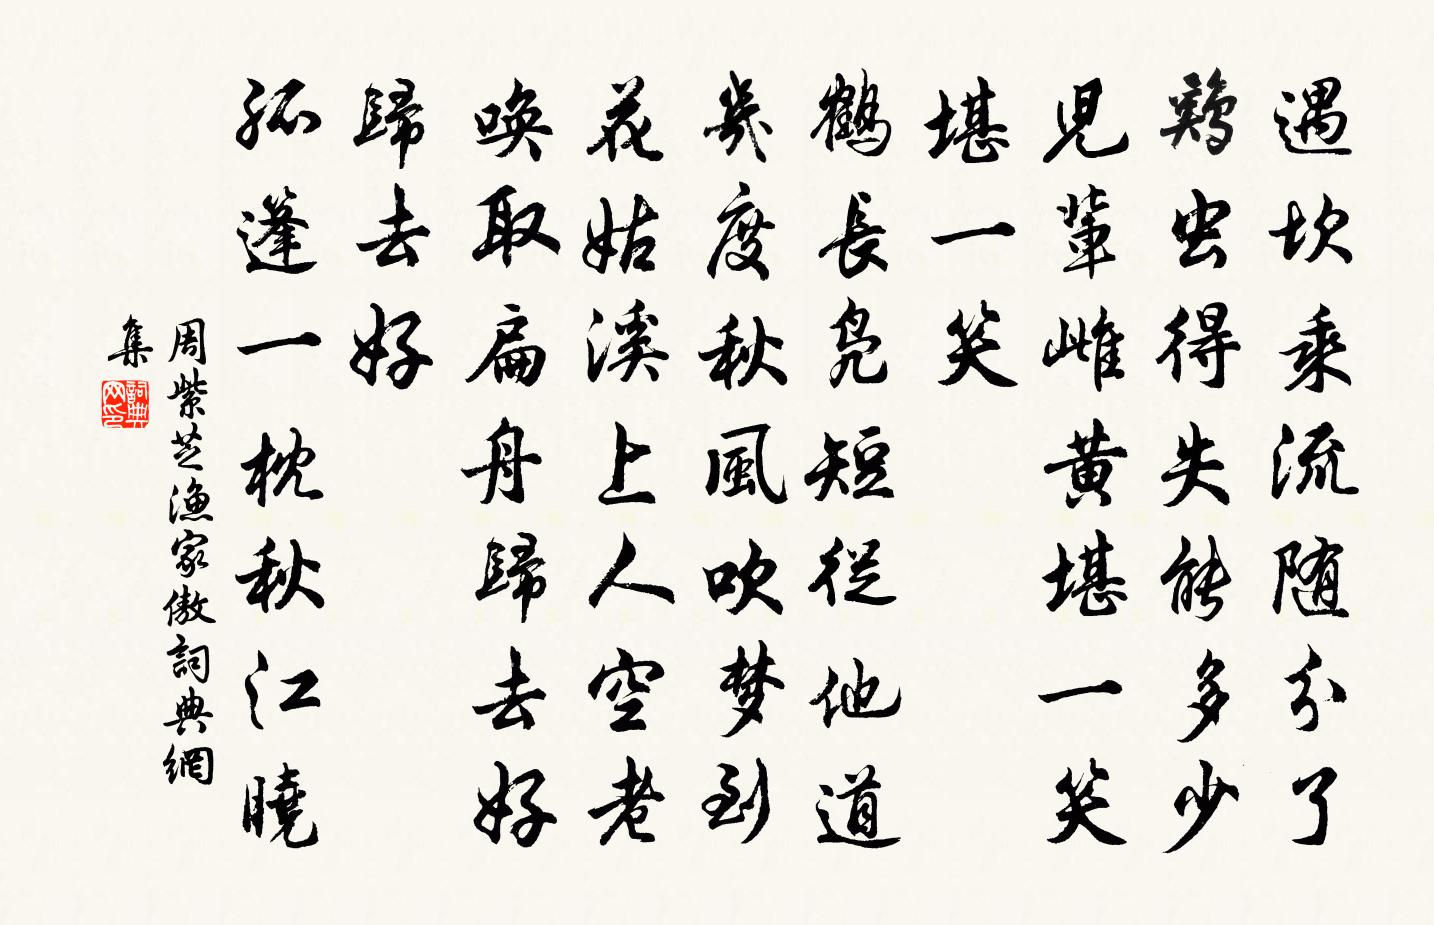 遇坎乘流随分了
鷄虫得失能多少
児輩雌黄堪一笑
堪一笑
鶴長凫短従他道
幾度秋風吹梦到
花姑溪上人空老
唤取扁舟歸去好
歸去好
孤篷一枕秋江曉
周紫芝漁家傲詞典網
集
詞典网印